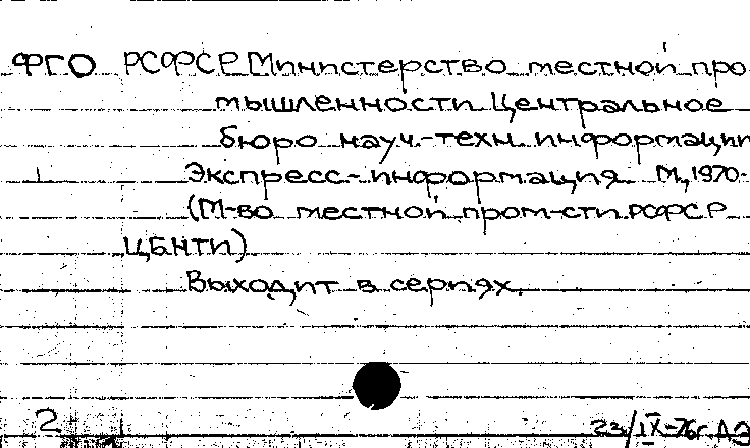 ФГО РСФСР Министерство местной про
мышленности Центральное
бюро науч.-техн. информации
Экспресс-информация. М., 1970-
(М-во местной пром-сти РСФСР
ЦБНТИ)
Выходит в сериях.
2
23/IX-76г.